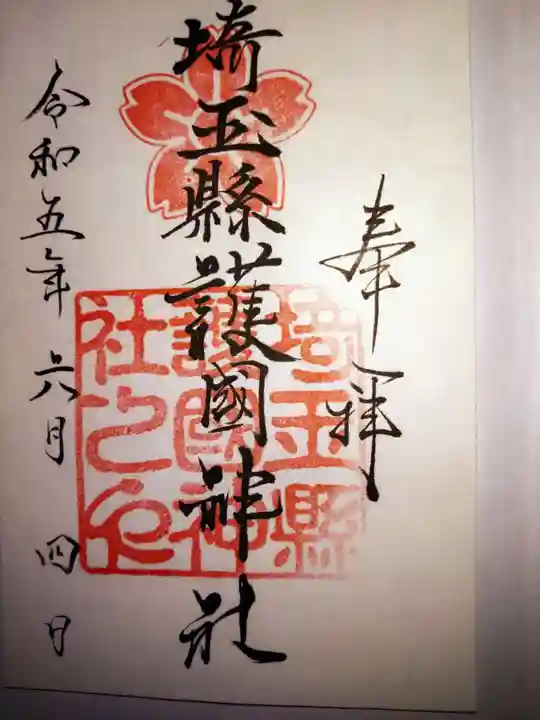 奉拝
埼玉縣護國神社
埼玉縣
護國神
社之印
令和五年六月四日